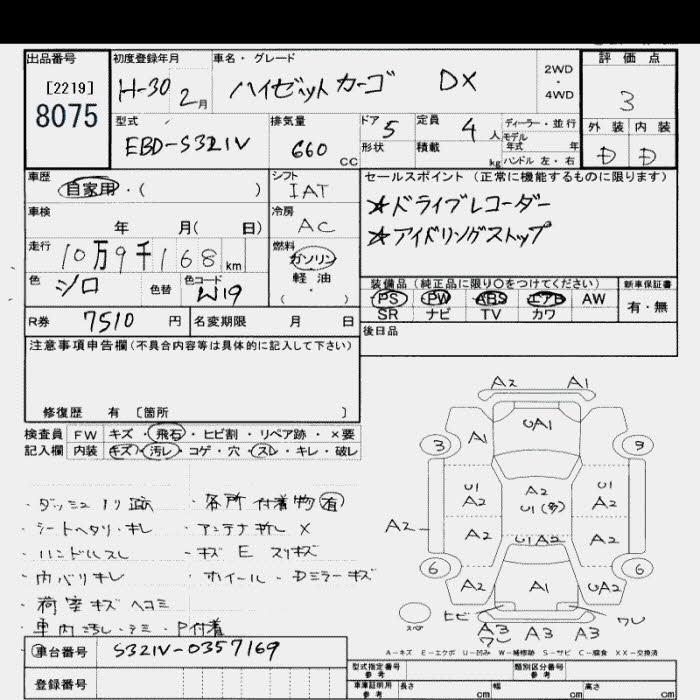 出品番号 初度登録年月 車名・グレード 評価点
[2219]
8075
H-30 2月 ハイゼットカーゴ DX
2WD・4WD
3
型式 排気量 ドア 5 定員 4人 ディーラー・並行 外装 内装
EBD-S321V 660cc
モデル年式 年
形状 積載 kg ハンドル 左・右
D D
車歴 シフト セールスポイント(正常に機能するものに限ります)
自家用・( ) IAT
☆ドライブレコーダー
車検 冷房
年 月( 日) AC
☆アイドリングストップ
走行 燃料
10万9千168km ガソリン
軽油
・
( )
色 色替 色コード
シロ W19
装備品(純正品に限り○をつけてください) 新車保証書
PS PW ABS エアB AW 有・無
SR ナビ TV カワ
R券 7510円 名変期限 月 日
後日品
注意事項申告欄(不具合内容等は具体的に記入して下さい)
修復歴 有 [箇所 ]
検査員 FW キズ・飛石・ヒビ割・リペア跡・×要
記入欄 内装 キズ・汚レ・コゲ・穴・スレ・キレ・破レ
・ダッシュノリ跡 ・各所付着物有
・シートヘタリ・キレ ・アンテナ折レ X
・ハンドルスレ ・キズ E スリキズ
・内バリキレ ・ホイール・Dミラーキズ
・荷室キズヘコミ
・車内汚レ・シミ・P付着
A2 A1
A1 UA1
3 9
U1 A2 A2 U1(多) U1 A2
A2 A2 U1A2 A2
6 6
A2 A1 UA2
スペア ヒビ ワレ
A3 ワレ A3 A3
A-キズ E-エクボ U-凹み W-補修跡 S-サビ C-腐食 XX-交換済
車台番号 S321V-0357169
登録番号
型式指定番号 参考 類別区分番号 参考
車庫証明用 参考 長さ cm 幅 cm 高さ cm